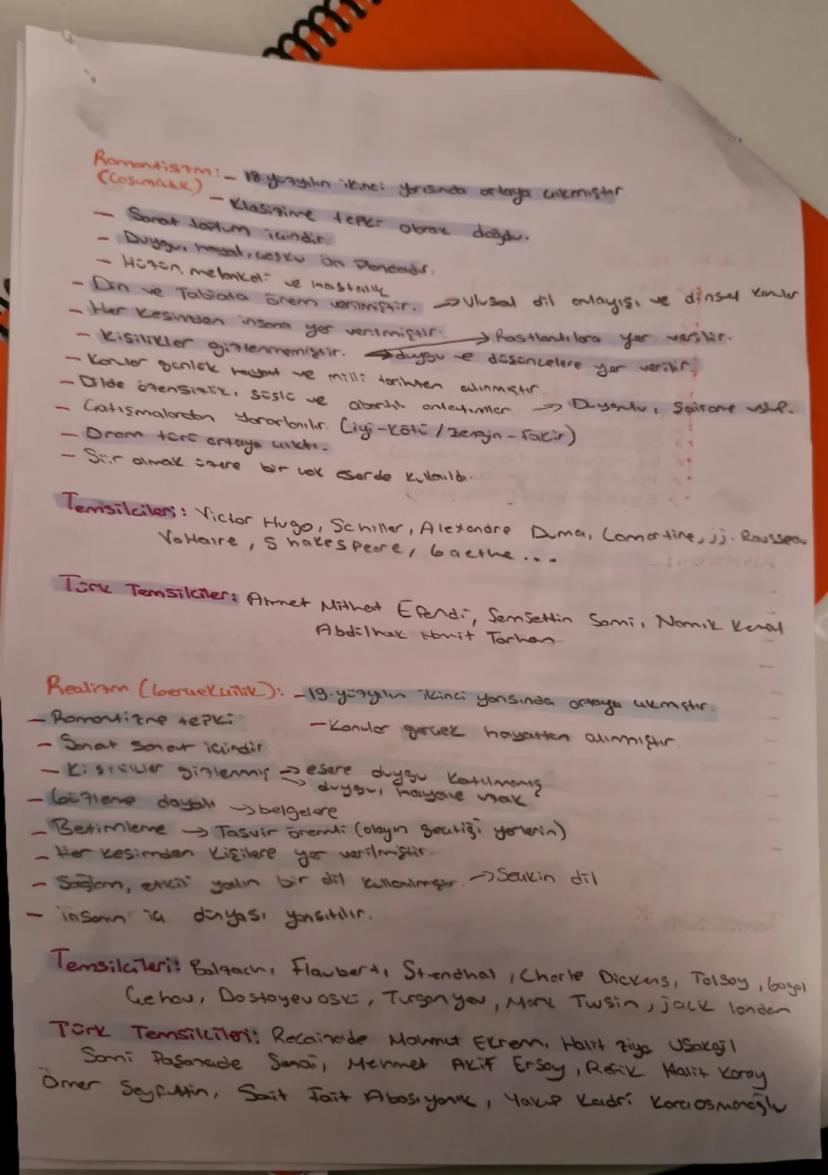 Romantizm: - 18. yüzyılın ikinci yarısında ortaya çıkmıştır.
(Coşumculuk) - Klasizime tepki olarak doğdu.
- Sanat toplum içindir.
- Duygu, hayal, coşku ön plandadır.
- Hüzün, melankoli ve hastalık
- Din ve Tabiata önem verilmiştir. → Ulusal dil anlayışı ve dinsel konular
- Her kesimden insana yer verilmiştir. → Rastlantılara yer verilir.
- Kişilikler gizlenmemiştir. → duygu ve düşüncelere yer verilir.
- Konular günlük hayat ve milli tarihten alınmıştır.
- Dilde özensizlik, süslü ve abartılı anlatımlar. → Duygulu, Şairane uslup.
- Çatışmalardan yararlanılır. (iyi-kötü / zengin-fakir)
- Dram türü ortaya çıktı.
- Şiir olmak üzere bir çok eserde kullanıldı.
Temsilcileri: Victor Hugo, Schiller, Alexandre Duma, Lamartine, jj. Rousseau
Voltaire, Shakespeare, Goethe ...
Türk Temsilciler: Ahmet Mithat Efendi, Şemsettin Sami, Namık Kemal
Abdilhak Hamit Tarhan
Realizm (Gerçekçilik): - 19. yüzyılın ikinci yarısında ortaya çıkmıştır.
- Romantizne tepki - Konular gerçek hayattan alınmıştır.
- Sanat sanat içindir
- Kişilikler gizlenmiş → esere duygu katılmamış
→ duygu, hayale uzak
- Gözleme dayalı → belgelere
- Betimleme → Tasvir önemli (olayın geçtiği yerlerin)
- Her kesimden kişilere yer verilmiştir.
- Sağlam, etkili yalın bir dil kullanılmıştır. → Seçkin dil
- insanın iç dünyası yansıtılır.
Temsilcileri: Balzach, Flaubert, Strendhal, Charle Dickens, Tolsoy, Gogol
Çehov, Dostoyevoski, Turgenyev, Mark Twain, jack london
Türk Temsilcileri: Recaizade Mahmut Ekrem, Halit Ziya Uşaklıgil
Sami Paşazade Sezai, Mehmet Akif Ersoy, Refik Halit Karay
Ömer Seyfettin, Sait Fait Abasıyanık, Yakup Kadri Karaosmanoğlu